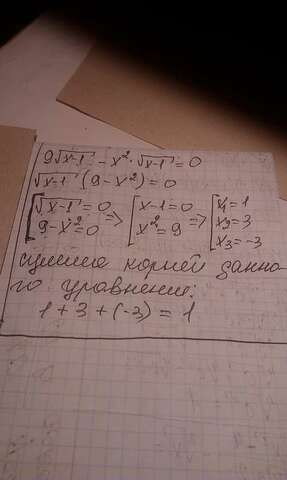 9√(x-1) - x²·√(x-1) = 0
√(x-1) (9-x²) = 0
[√(x-1) = 0 => [x-1=0 => [x₁=1
9-x²=0 x²=9 x₂=3
x₃=-3
сумма корней данно-
го уравнения:
1+3+(-3) = 1